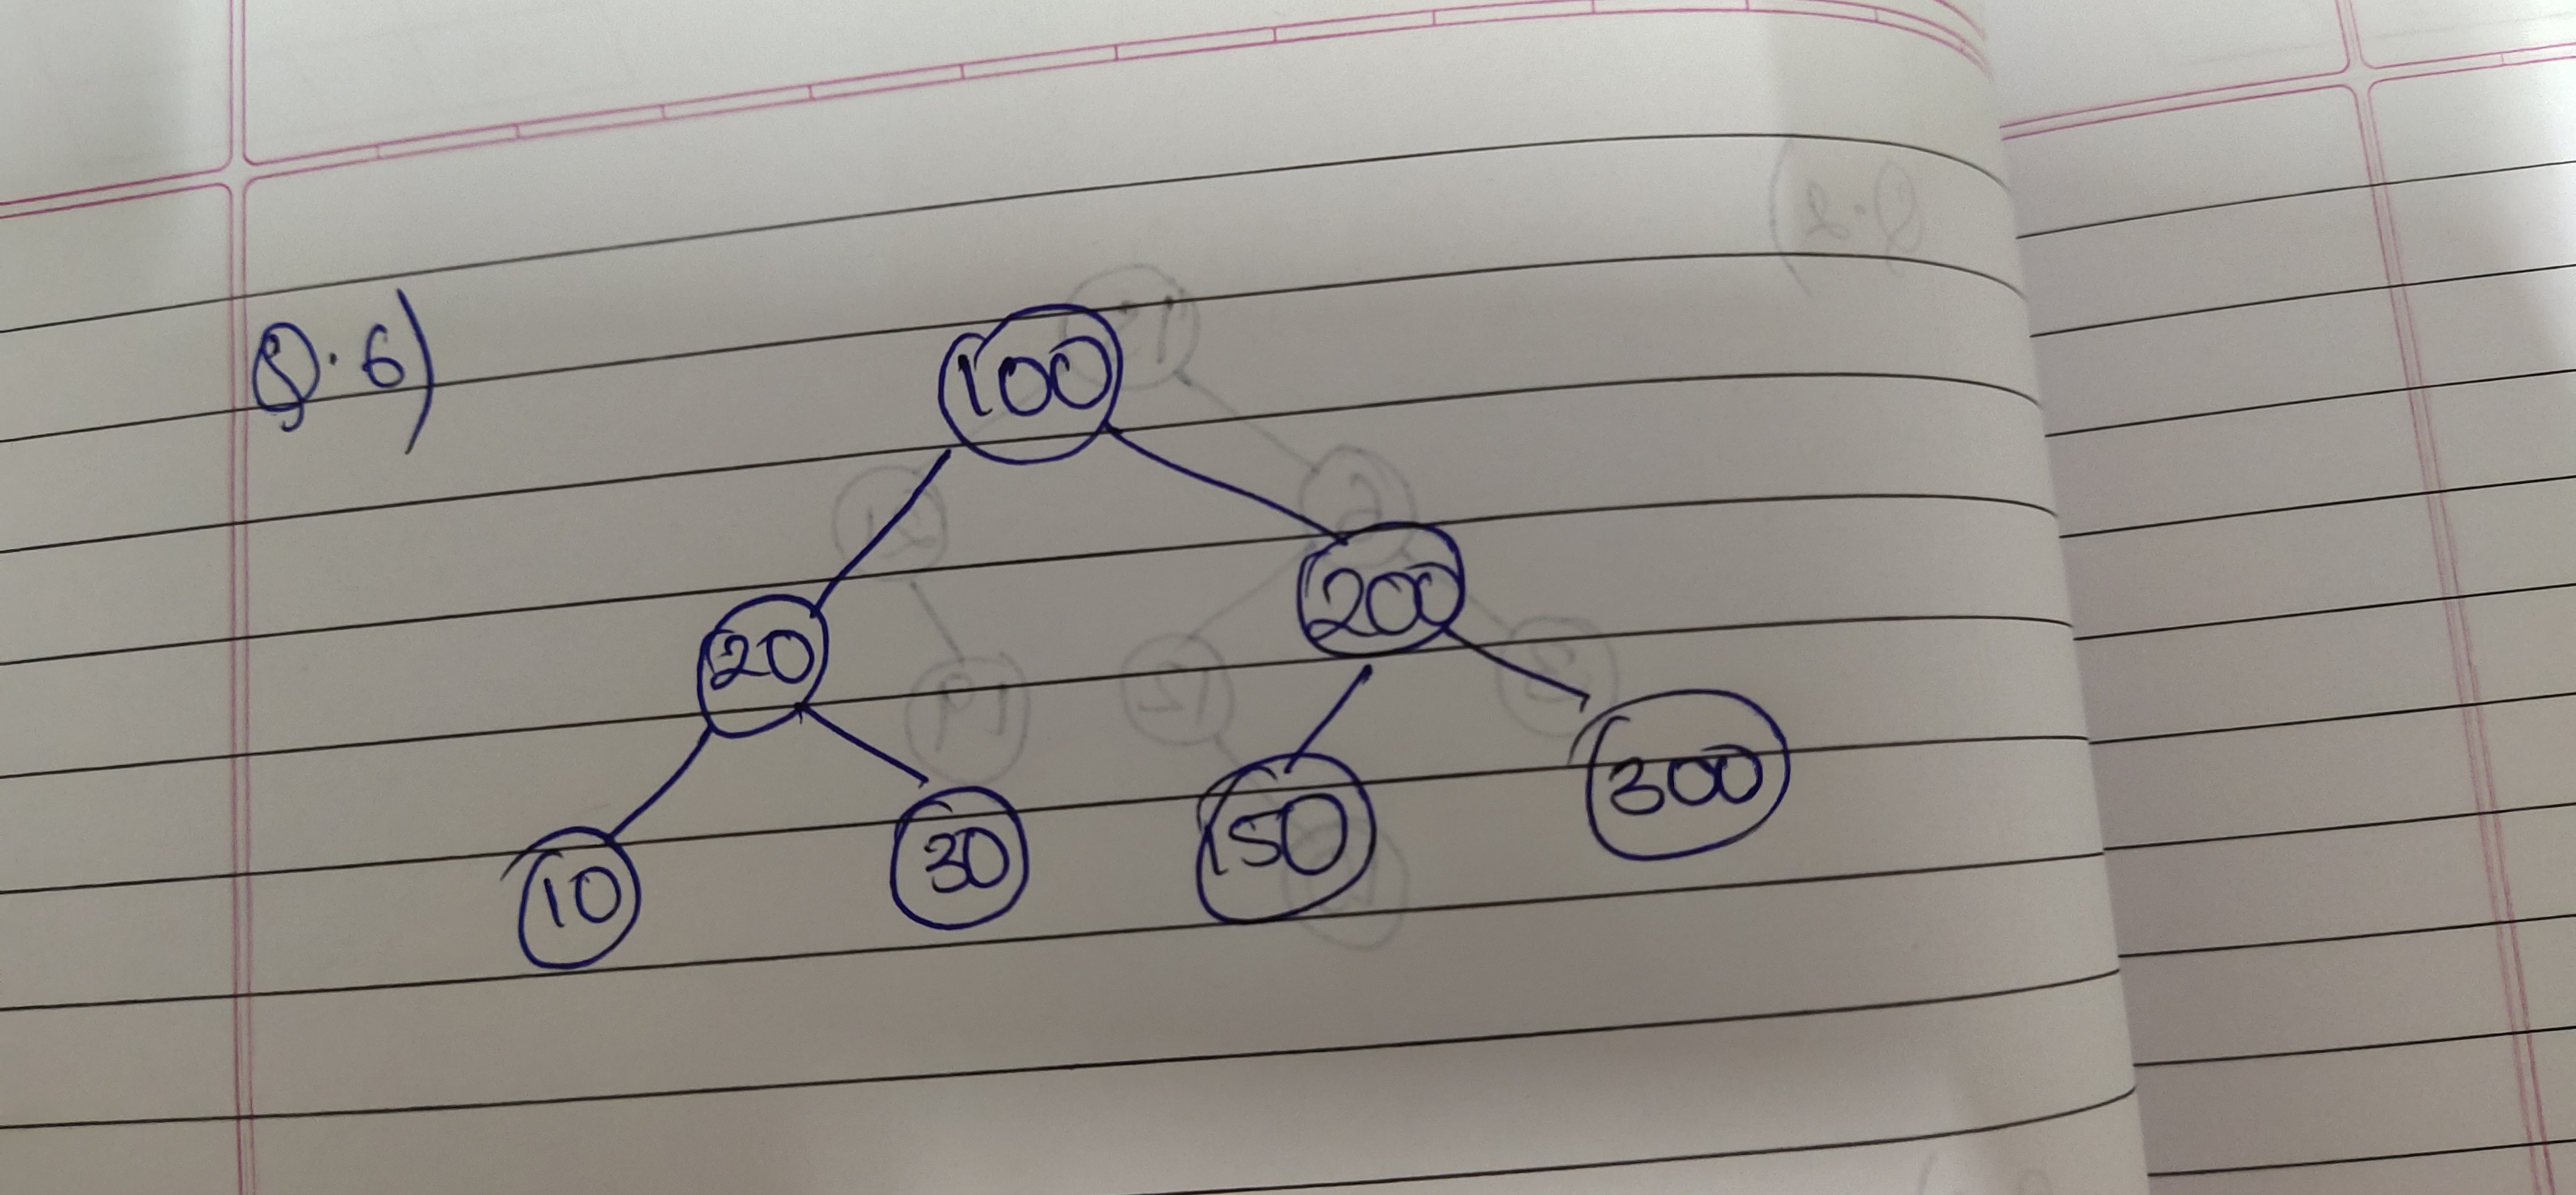 Q.6)
100
20 200
10 30 150 300